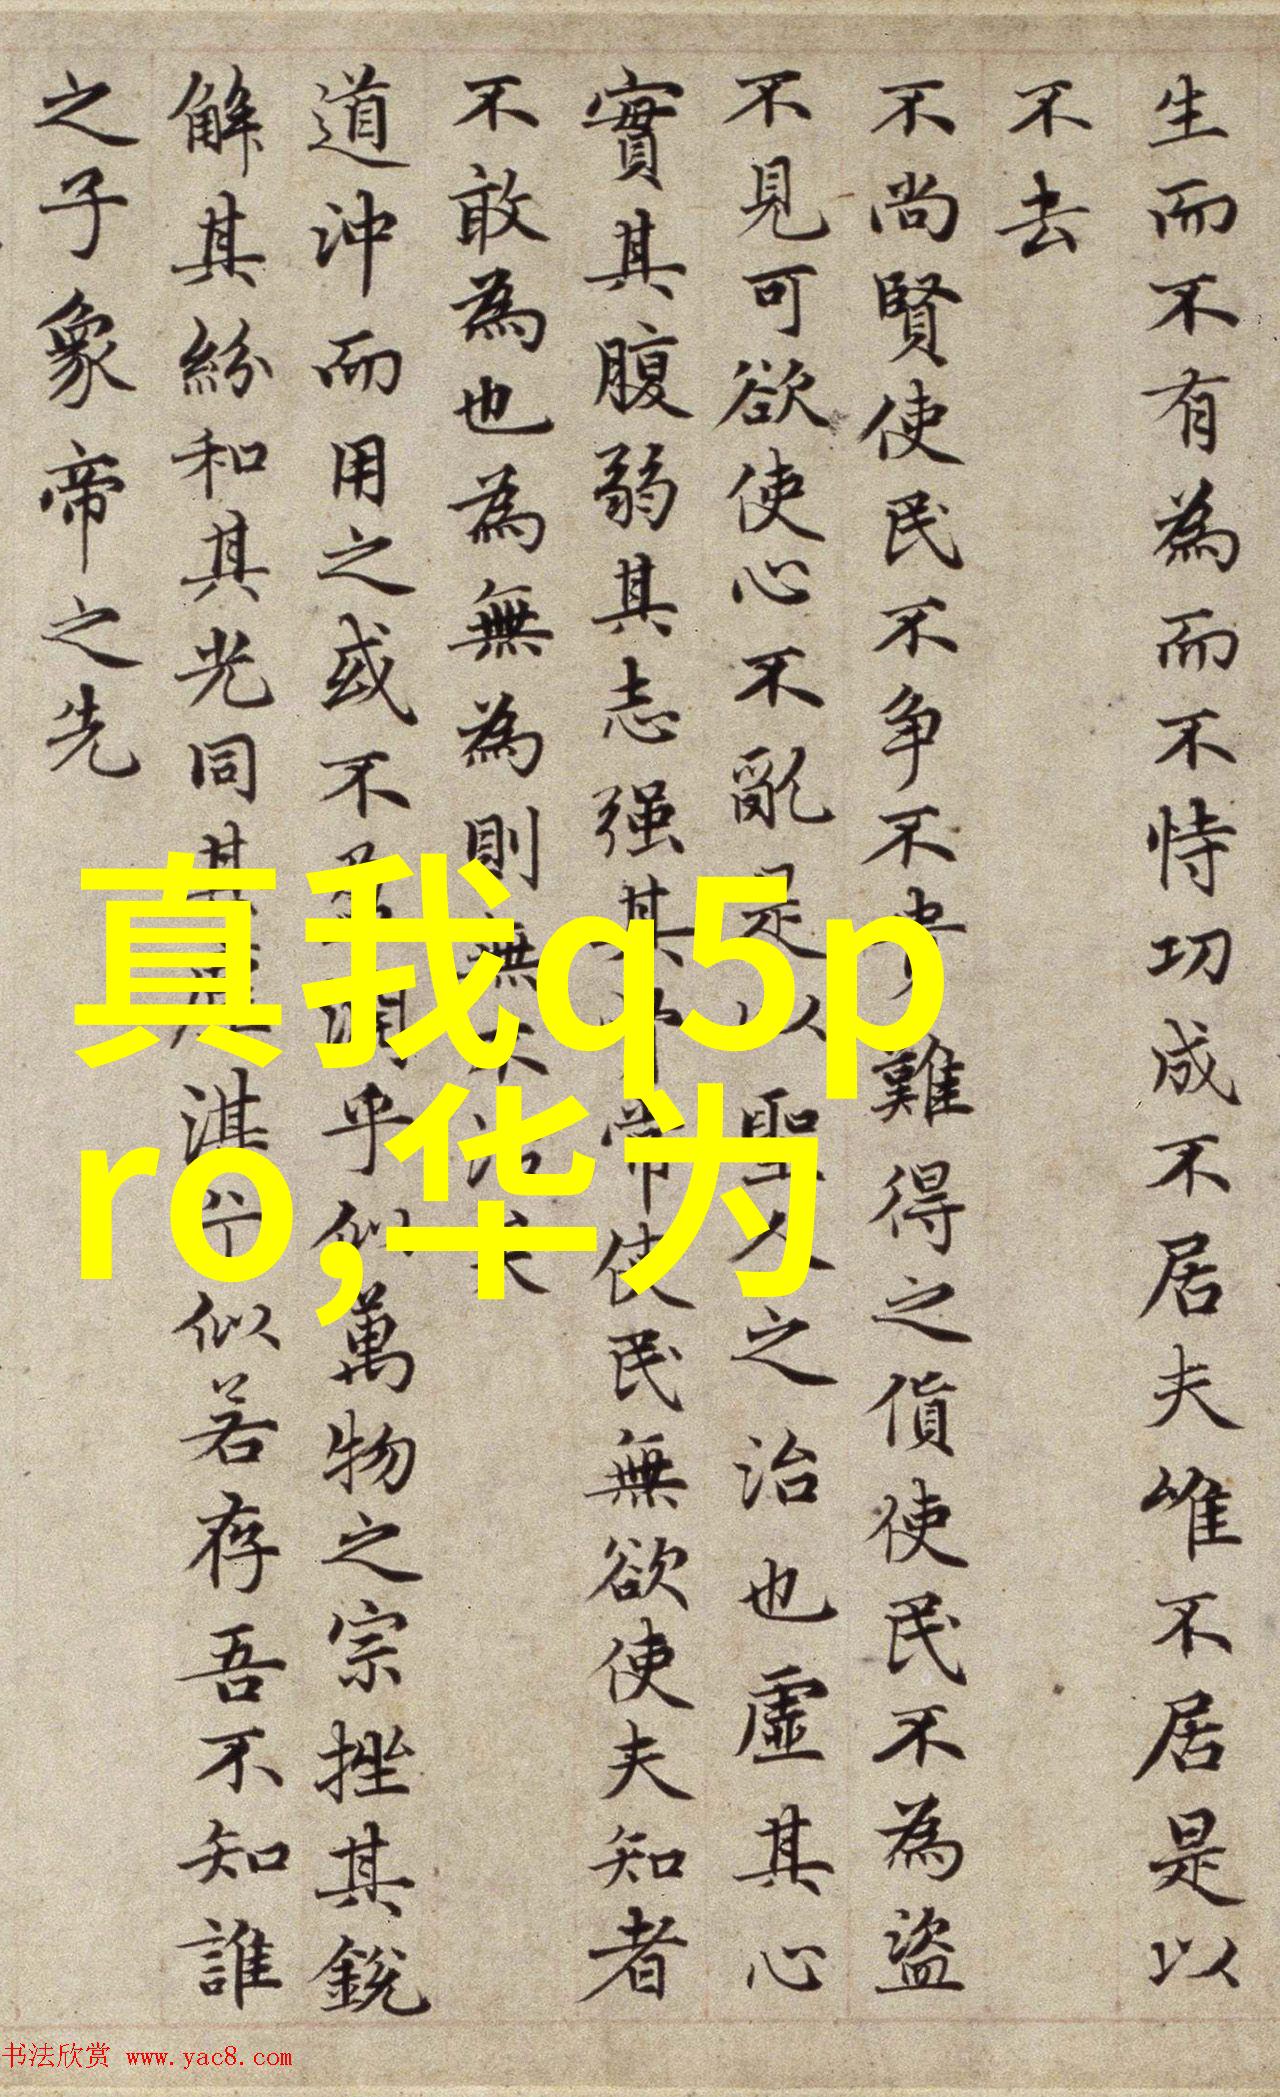 生而不有為而不恃功成不居夫唯不居是以
不去
不尚賢使民不争不難得之貨使民不為盜
不見可欲使心不亂是以聖人之治也虛其心
實其腹弱其志强其常使民無欲使夫知者
不敢為也為無為則無不治矣
道沖而用之或不乎似萬物之宗挫其銳
解其紛和其光同其湛兮似若存吾不知誰
之子象帝之先
真我q5p
ro,华为
书法欣赏 www.yac8.com